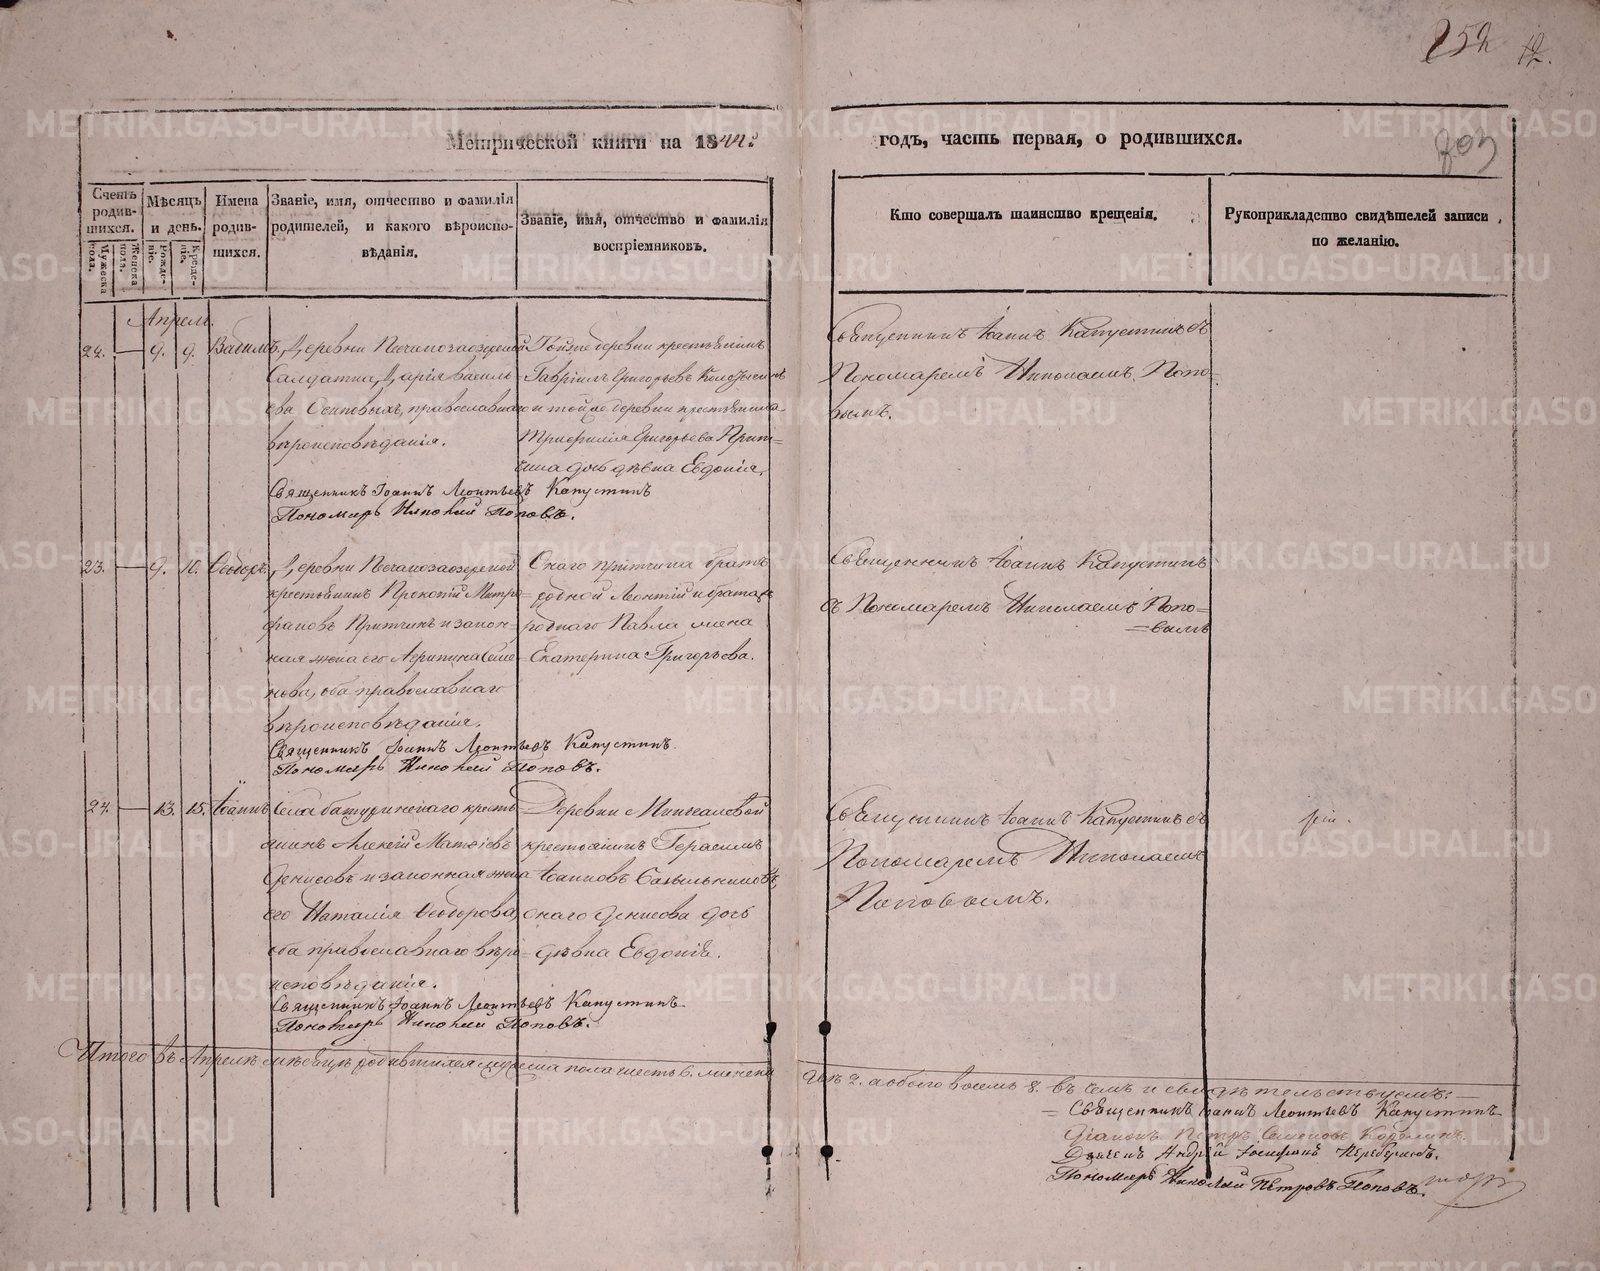 252 12.
803
Метрической книги на 1844й годъ, часть первая, о родившихся.
Счетъ родившихся.
Мужеска пола.
Женска пола.
Мѣсяцъ и день.
Рожденіе.
Крещеніе.
Имена родившихся.
Званіе, имя, отчество и фамилія родителей, и какого вѣроисповѣданія.
Званіе, имя, отчество и фамилія воспріемниковъ.
Кто совершалъ таинство крещенія.
Рукоприкладство свидѣтелей записи по желанію.
Апрель.
9. 9.
Деревни Песчанозаозерской
Салдатка Дарія Василь-
ева Осиповыхъ, православнаго
вѣроисповѣданія.
Тойже деревни крестьянинъ
Гавріилъ Григорьевъ
и тойже деревни крестьянина
Трифилія Григорьева Прит-
чина дочь дѣвка Евдокія.
Священникъ Іоаннъ Леонтьевъ Капустинъ
Пономарь Николай Поповъ.
Священникъ Іоаннъ Капустинъ съ
Пономаремъ Николаемъ Попо-
вымъ.
23. 9. 10. Ѳеодоръ.
Деревни Песчанозаозерской
крестьянинъ Прокопій Митро-
фановъ Притчинъ и закон-
ная жена его Агрипина Семе-
нова, оба православнаго
вѣроисповѣданія.
Онаго Притчина братъ
родной Леонтій и брата
роднаго Павла жена
Екатерина Григорьева.
Священникъ Іоаннъ Леонтьевъ Капустинъ.
Пономарь Николай Поповъ.
Священникъ Іоаннъ Капустинъ
съ Пономаремъ Николаемъ Попо-
=вымъ
24. 13. 15. Іоаннъ
Села Батуринскаго кресть-
янинъ Алексій Матѳіевъ
Денисовъ и законная жена
его Наталія Ѳеодорова,
оба православнаго вѣро-
исповѣданія.
Деревни
крестьянинъ Герасимъ
Іоанновъ
онаго Денисова дочь
дѣвка Евдокія.
Священникъ Іоаннъ Леонтьевъ Капустинъ.
Пономарь Николай Поповъ.
Священникъ Іоаннъ Капустинъ съ
Пономаремъ Николаемъ
Поповымъ.
Итого въ Апрелѣ мѣсяцѣ родившихся мужеска пола шесть 6. женска двѣ 2. а обоего восемь 8. въ чемъ и свидѣтельствуемъ:
Священникъ Іоаннъ Леонтьевъ Капустинъ
Діаконъ Петръ Семеновъ
Дьячекъ Андрей
Пономарь Николай Петровъ Поповъ.
METRIKI.GASO-URAL.RU